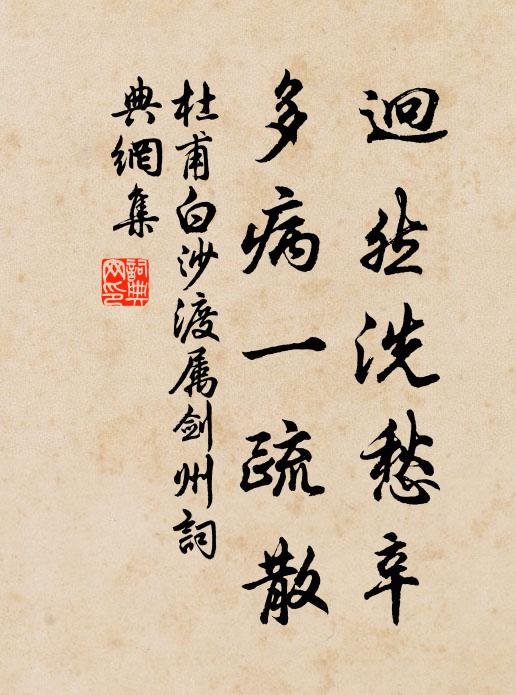 迥然洗愁辛
多病一疏散
杜甫白沙渡属剑州詞
典網集
詞典
网印